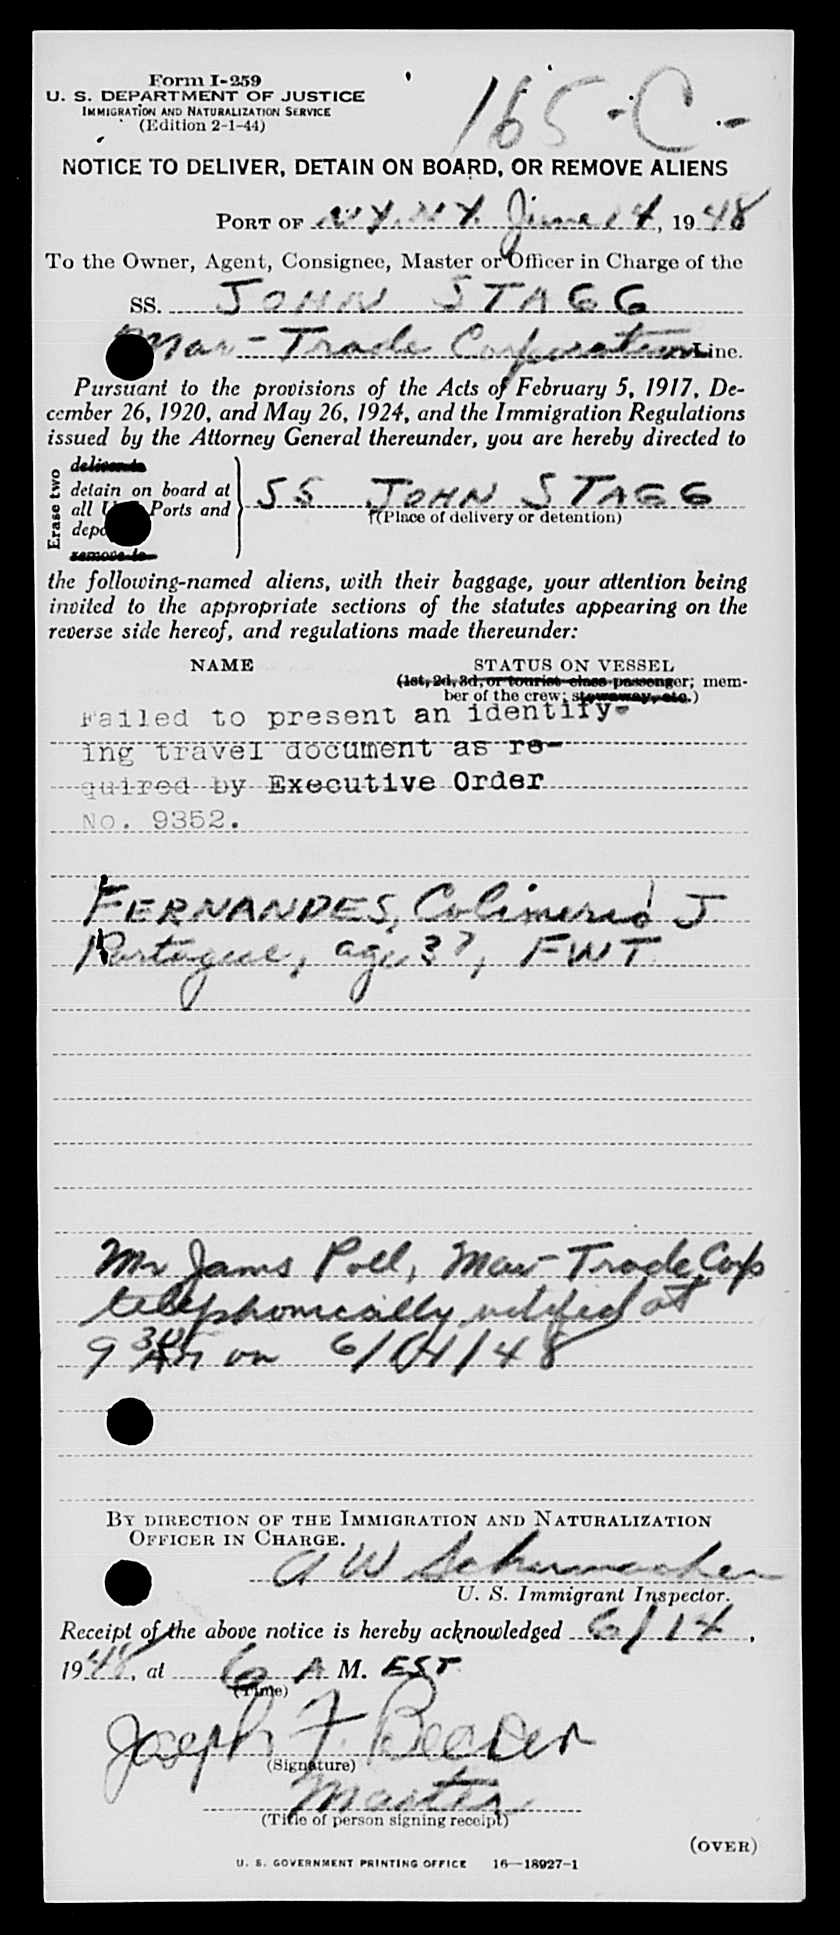 Form I-259
U. S. DEPARTMENT OF JUSTICE
IMMIGRATION AND NATURALIZATION SERVICE
(Edition 2-1-44)
165-C-
NOTICE TO DELIVER, DETAIN ON BOARD, OR REMOVE ALIENS
PORT OF N.Y. N.Y. June 14, 1948
To the Owner, Agent, Consignee, Master or Officer in Charge of the
SS. JOHN STAGG
Mar-Trade Corporation Line.
Pursuant to the provisions of the Acts of February 5, 1917, De-
cember 26, 1920, and May 26, 1924, and the Immigration Regulations
issued by the Attorney General thereunder, you are hereby directed to
Erase two
deliver to
detain on board at
all U. S. Ports and
remove to
SS JOHN STAGG
(Place of delivery or detention)
the following-named aliens, with their baggage, your attention being
invited to the appropriate sections of the statutes appearing on the
reverse side hereof, and regulations made thereunder:
NAME STATUS ON VESSEL
(1st, 2d, 3d, or tourist class passenger; mem-
ber of the crew; stowaway, etc.)
Failed to present an identify-
ing travel document as re-
quired by Executive Order
No. 9352.
FERNANDES, Colimerio J
Portugue, age 37, FWT
Mr Jams Poll, Mar-Trade Corp
telephonically notified at
9 30 AM on 6/14/48
BY DIRECTION OF THE IMMIGRATION AND NATURALIZATION
OFFICER IN CHARGE.
A W Schumacher
U. S. Immigrant Inspector.
Receipt of the above notice is hereby acknowledged 6/14,
1948, at 6 A M. EST
(Time)
Joseph F.
(Signature)
Master
(Title of person signing receipt)
(OVER)
U. S. GOVERNMENT PRINTING OFFICE 16—18927-1